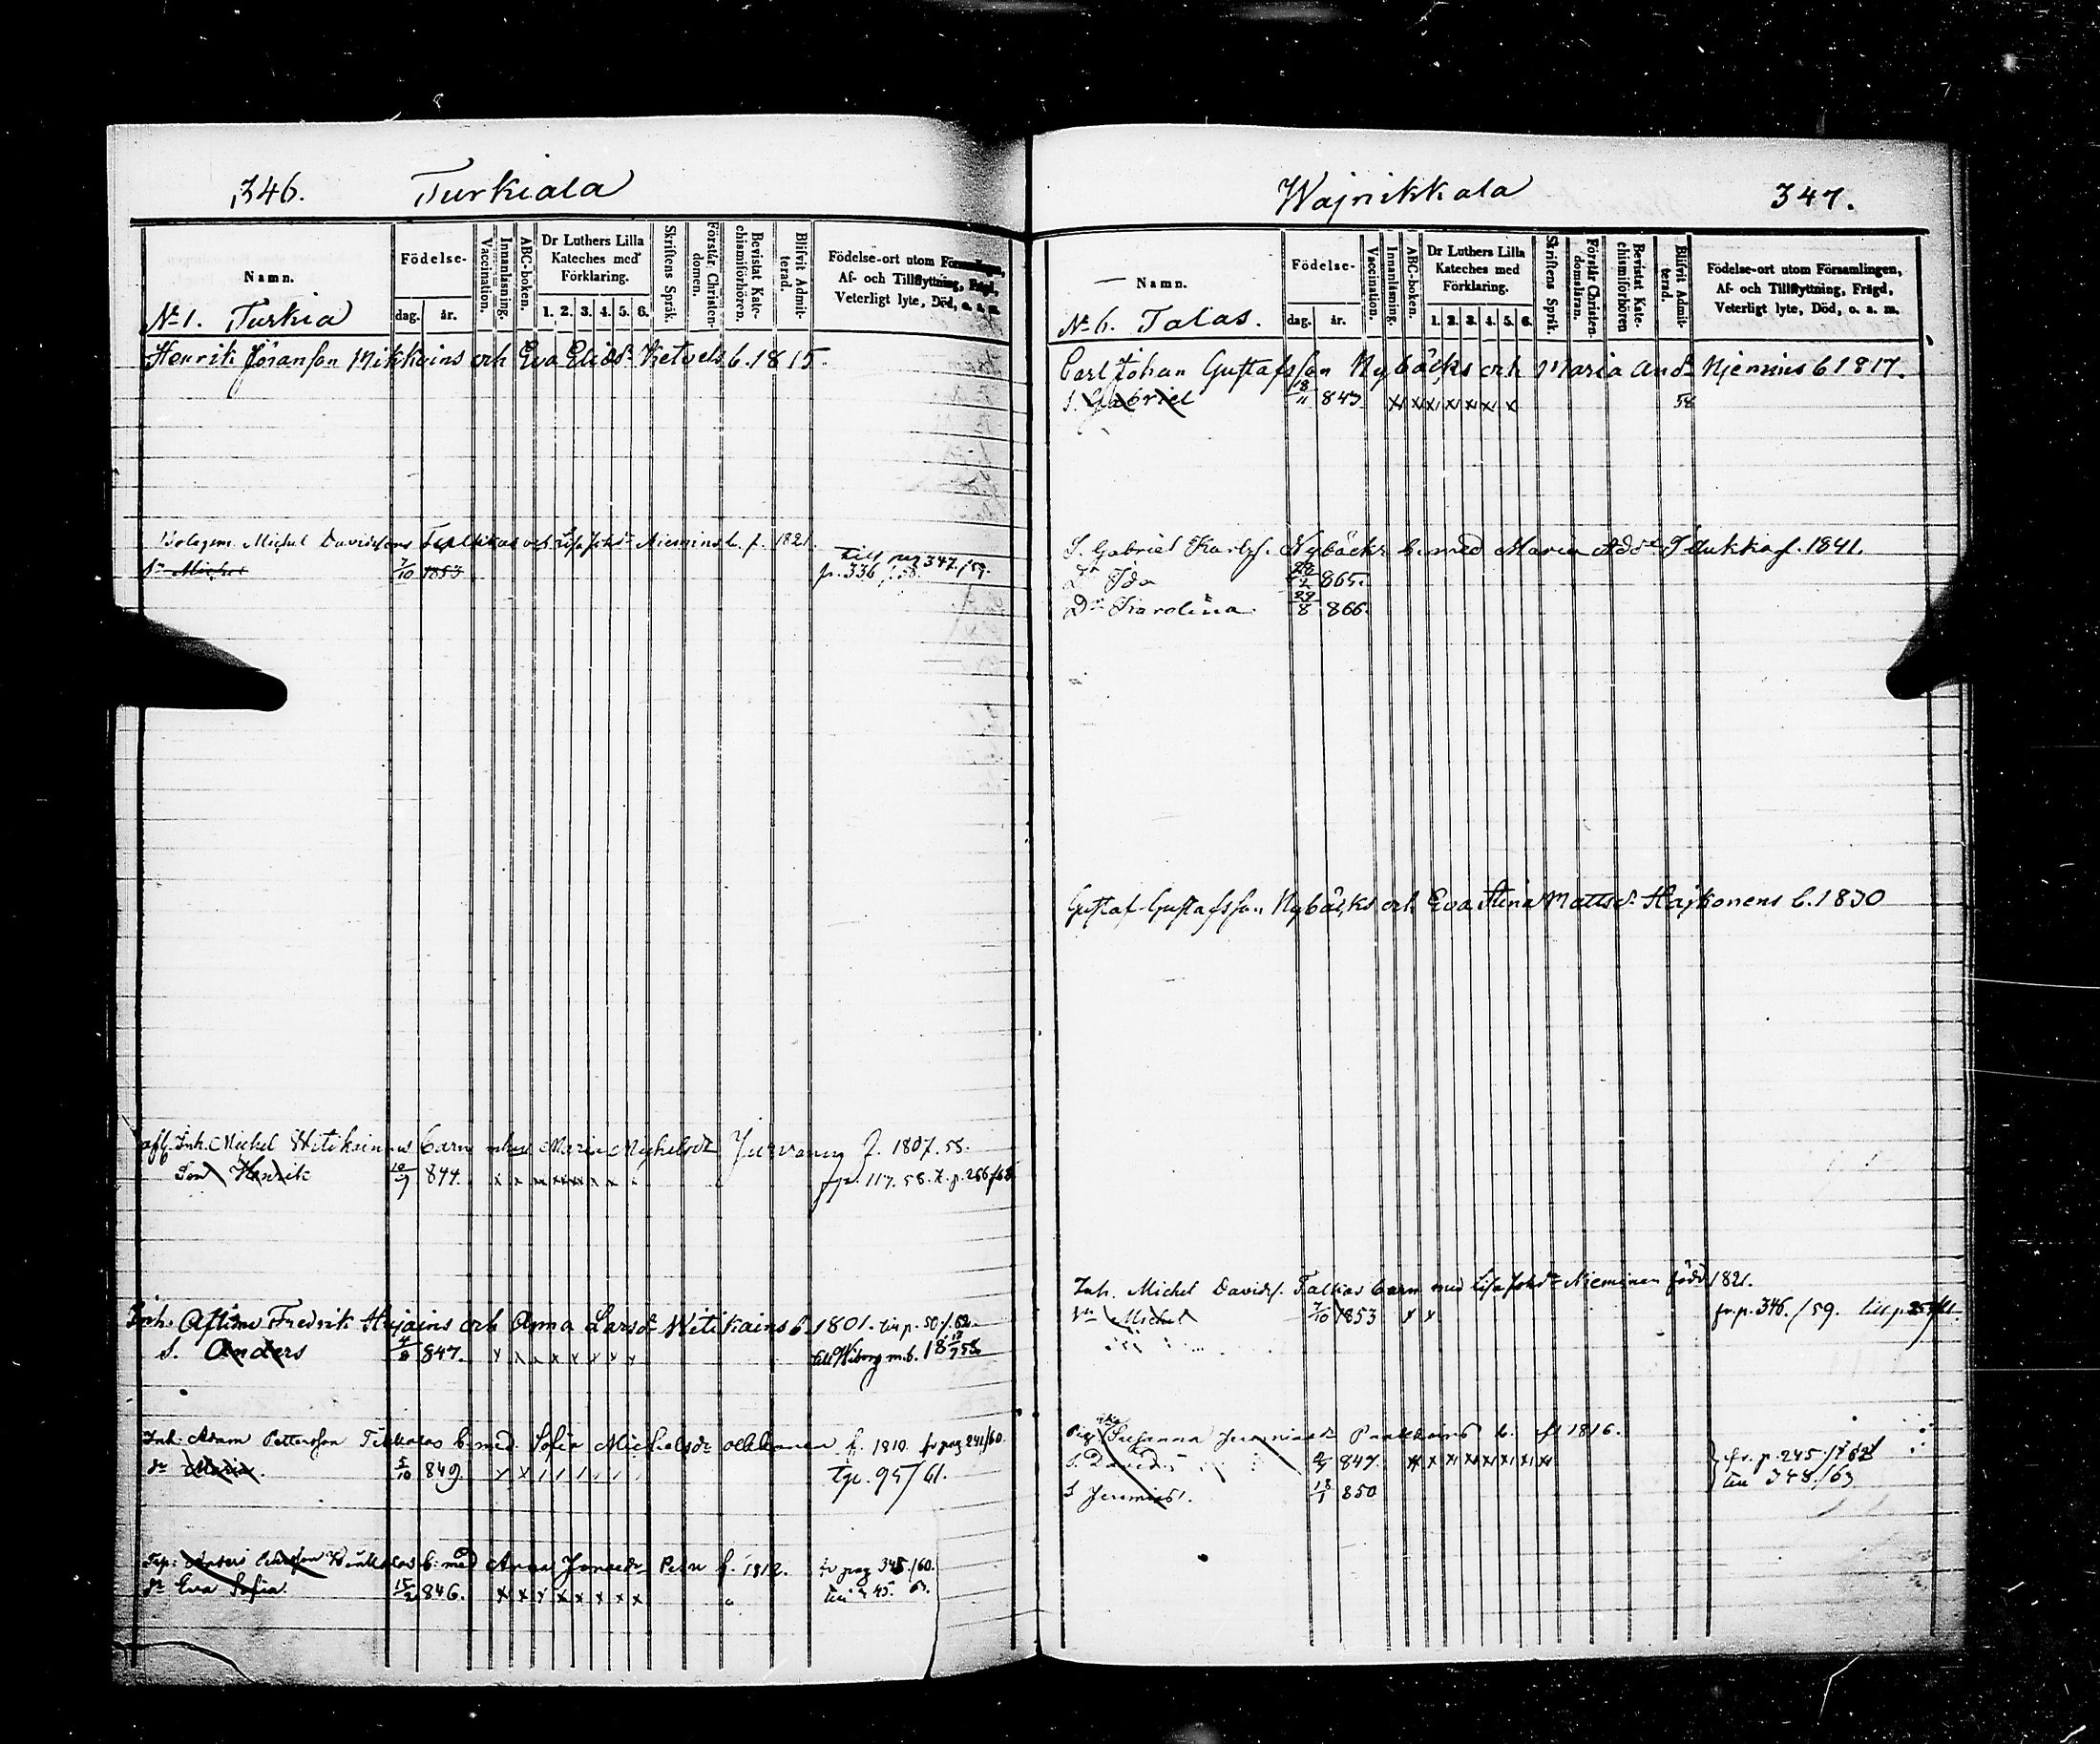 346. Turkiala
Namn.
Födelse-
dag. år.
Vaccination.
Innanläsning.
ABC-boken.
Dr Luthers Lilla
Kateches med
Förklaring.
1. 2. 3. 4. 5. 6.
Skriftens Språk.
Förstår Christen-
domen.
Bevistat Kate-
chismiförhören.
Blifvit Admit-
terad.
Födelse-ort utom Församlingen,
Af- och Tillflyttning, Frägd,
Veterligt lyte, Död, o. a. m.
No 1. Turkia
Henrik Jöransson Mikkoins och Eva Eliædr Ketvels b. 1815.
Michel Davidsons Talkkas och Lisa Johdr Niemins b. f. 1821.
Dn Michel 7/10 1853 fr. 336 /58. till pag 347. /59.
Inh. Michel Witikainens barn Maria Michelsdr f. 1807. 58.
Son Henrik 10/9 844. x x x x x x x x fr p. 117. 58. t. p. 266/62
Inh. Fredrik och Anna Larsdr Witikains b. 1801. till p. 50/62.
S. Anders 4/8 847. x x x x x x x x till Wiborg m. b. 18 12/7 58
Inh. Adam Pettersson b. med Sofia Michelsdr f. 1810. fr pag 241/60.
dr Maria. 5/10 849. T p. 95/61.
b. med Anna f. 1812. fr pag 345./60.
dr Eva Sofia. 15/2 846. x x x x x x x x till 45. 63.
Wajnikkala 347.
Namn.
Födelse-
dag. år.
Vaccination.
Innanläsning.
ABC-boken.
Dr Luthers Lilla
Kateches med
Förklaring.
1. 2. 3. 4. 5. 6.
Skriftens Språk.
Förstår Christen-
domsläran.
Bevistat Kate-
chismiförhören
Blifvit Admit-
terad.
Födelse-ort utom Församlingen,
Af- och Tillflyttning, Frägd,
Veterligt lyte, Död, o. a. m.
No 6. Talas.
Carl Johan Gustafsson Nybäcks och Maria Andr Njemins b 1817.
S. Gabriel 18/11 843. x x x x x x x 58
S. Gabriel Karlss. Nybäcks b. med Maria Addr f. 1841.
Dr Ida 865.
Dr Karolina 29/8 866.
Gustaf Gustafsson Nybäcks och Eva Stina Mattsdr Hajkonens b. 1830
Inh. Michel Davids. Talkas barn med Lisa Johdr Nieminen född 1821.
Dn Michel 7/10 1853 x x fr. p. 346. /59. till p.
Pig. Susanna Jeremiædr b. f. 1816.
S. David 847. x x x x x x x x fr. p. 245 /
S Jeremias. 18/1 850 till 348./63